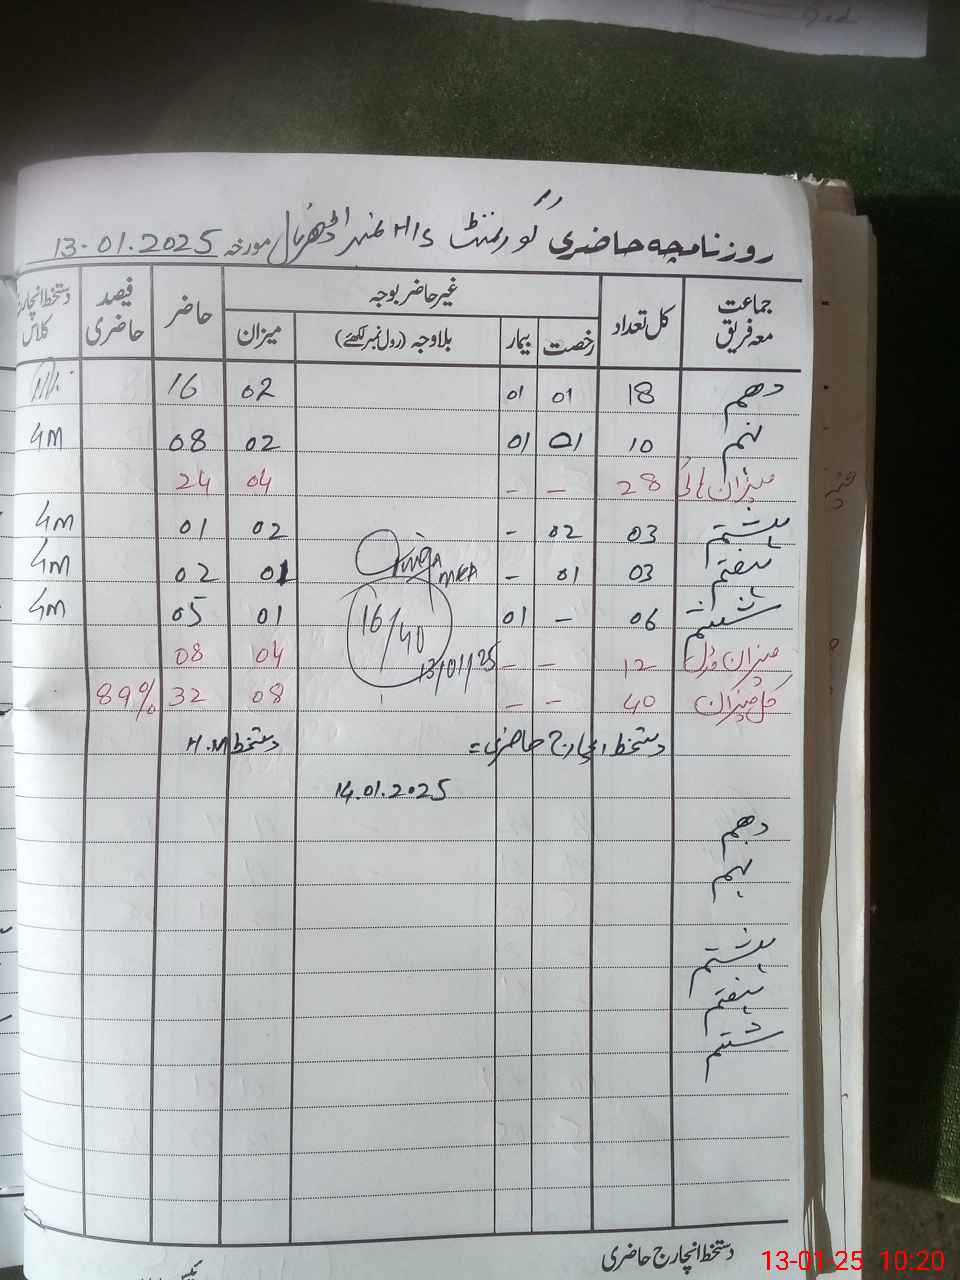 روزنامچہ حاضری گورنمنٹ H/S مورخہ 13.01.2025
جماعت معہ فریق | کل تعداد | غیر حاضر بوجہ | حاضر | فیصد حاضری | دستخط انچارج کلاس
رخصت | بیمار | بلاوجہ (رول نمبر لکھئے) | میزان
دھم 18 01 01 02 16
نہم 10 01 01 02 08 HM
میزان ہائی 28 – – 04 24
ہشتم 03 02 – 02 01 HM
ہفتم 03 01 – 01 02 HM
ششم 06 – 01 01 05 HM
میزان مڈل 12 – – 04 08
کل میزان 40 – – 08 32 89%
MEA
16/40
13/01/25
دستخط انچارج حاضری = دستخط H.M
14.01.2025
دھم
نہم
ہشتم
ہفتم
ششم
دستخط انچارج حاضری
13-01-25 10:20